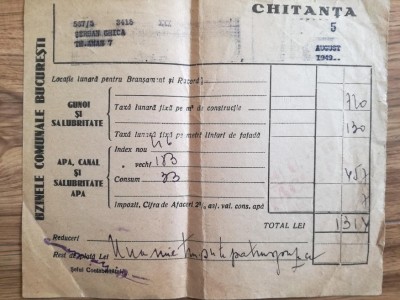 CHITANȚA
507/3 2415 XXX
SERBAN GHICA
5
AUGUST
UZINELE COMUNALE BUCUREȘTI
Locație lunară pentru Branșament și Racord
GUNOI
ȘI
SALUBRITATE
Taxă lunară fixă pe m² de construcție
720
Taxă lunară fixă pe metri liniari de fațadă
130
APA, CANAL
ȘI
SALUBRITATE
APA
Index nou 216
" vechi 183
Consum 33
457
Impozit, Cifra de Afaceri 2%, asf. val. cons. apă
7
TOTAL LEI
1314
Reduceri
Rest de plată Lei
Șeful Contabilității